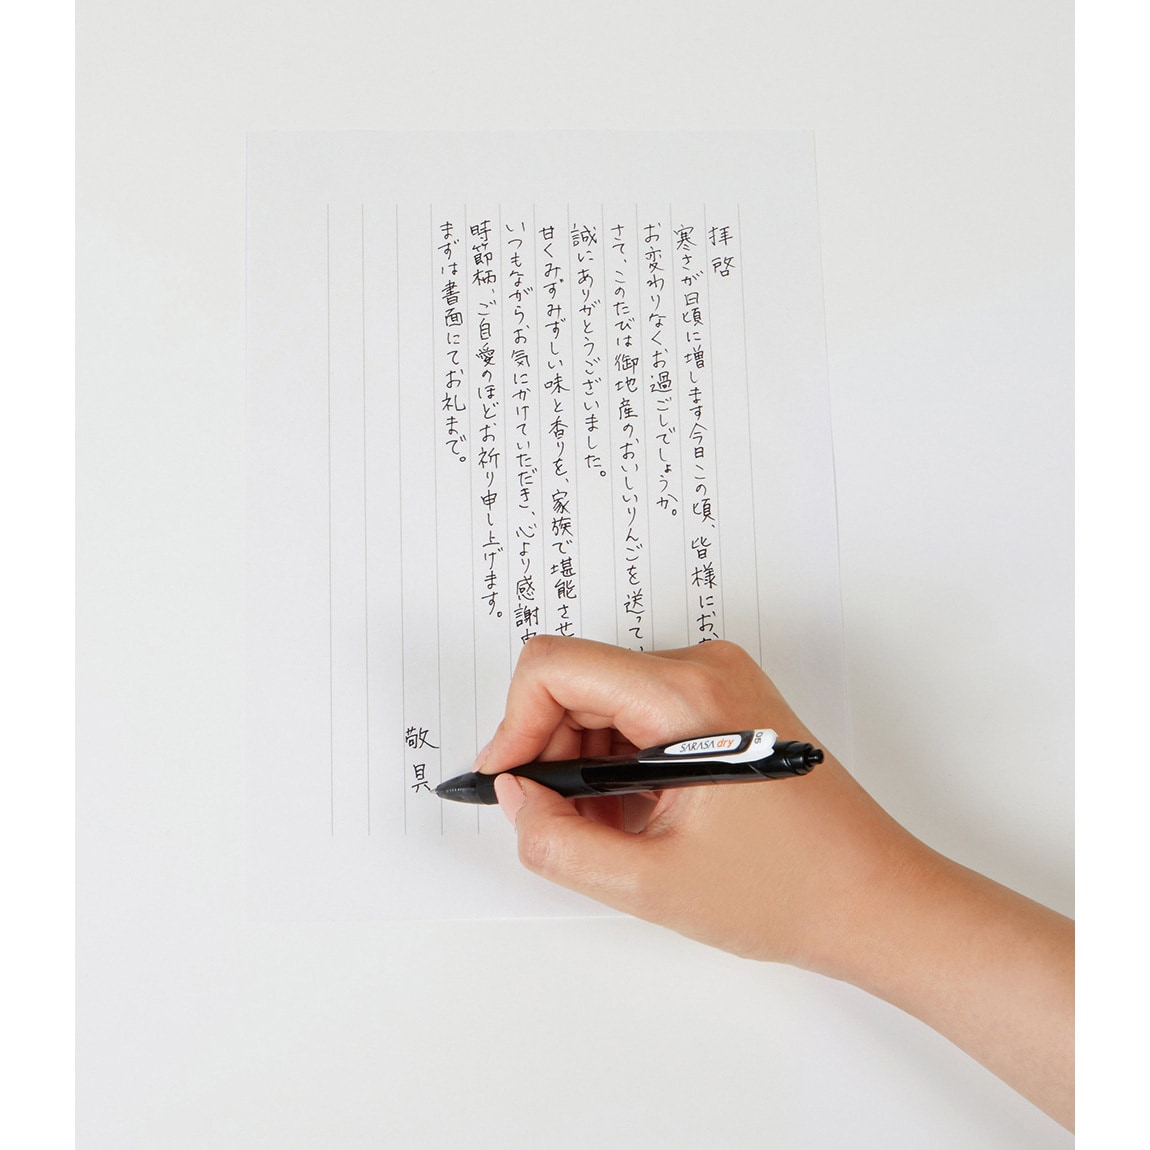 拝啓
寒さが日頃に増します今日この頃、皆様にお
お変わりなくお過ごしでしょうか。
さて、このたびは御地産のおいしいりんごを送って
誠にありがとうございました。
甘くみずみずしい味と香りを、家族で堪能させ
いつもながらお気にかけていただき、心より感謝
時節柄、ご自愛のほどお祈り申し上げます。
まずは書面にてお礼まで。
敬具
SARASA dry 0.5